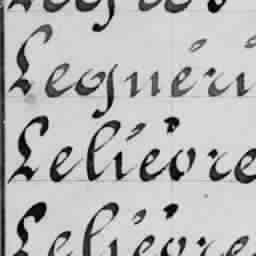 Leguéri
Leliévre
Leliévre